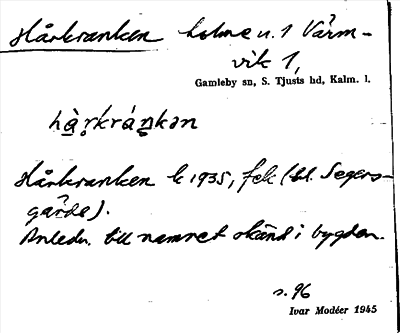 Hårkranken holme u. 1 Värm-
vik 1,
Gamleby sn, S. Tjusts hd, Kalm. l.
hà̱r̥krán̲kən
Hårkranken k 1935, fek (bl. Segers-
gärde).
Anledn. till namnet okänd i bygden.
s. 96
Ivar Modéer 1945